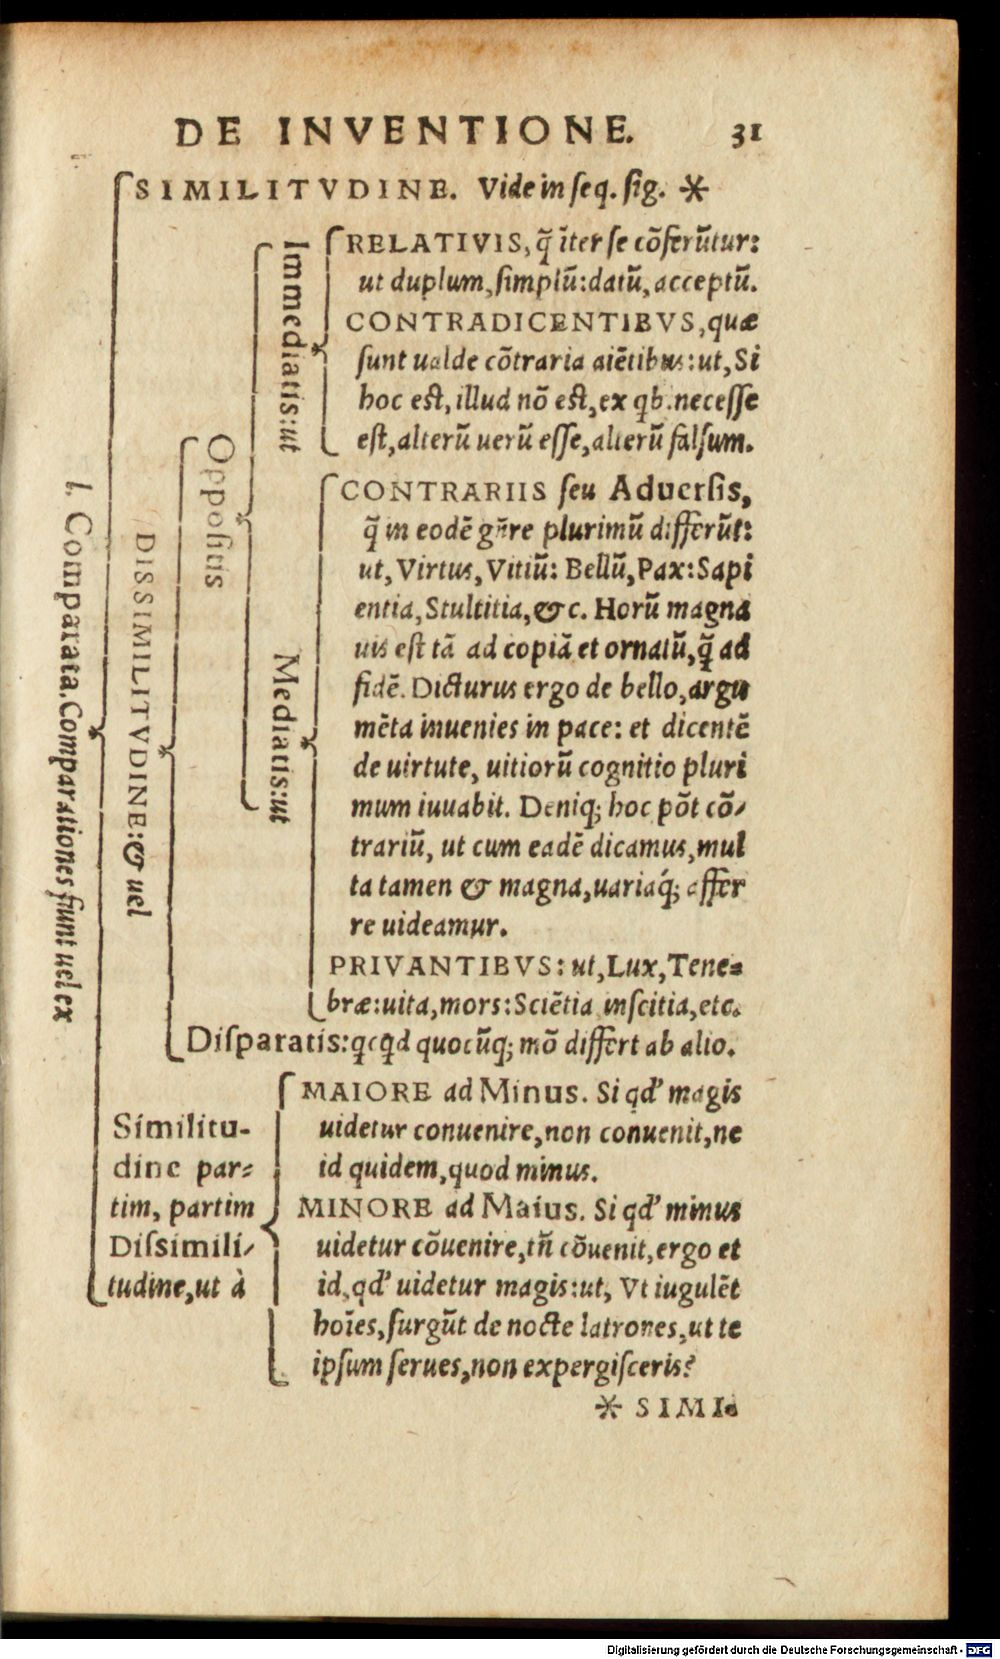 DE INVENTIONE. 31
SIMILITVDINE. Vide in seq. sig. *
I. Comparata. Comparationes fiunt uel ex
DISSIMILITVDINE: & uel
Oppositis
Immediatis: ut
RELATIVIS, q̃ īter se cōferūtur:
ut duplum, simplū: datū, acceptū.
CONTRADICENTIBVS, quæ
sunt ualde cōtraria aiētibus: ut, Si
hoc est, illud nō est, ex qb. necesse
est, alterū uerū esse, alterū falsum.
Mediatis: ut
CONTRARIIS seu Aduersis,
q̃ in eodē gñre plurimū differūt:
ut, Virtus, Vitiū: Bellū, Pax: Sapi
entia, Stultitia, &c. Horū magna
uis est tā ad copiā et ornatū, q̃ ad
fidē. Dicturus ergo de bello, argu
mēta inuenies in pace: et dicentē
de uirtute, uitiorū cognitio pluri
mum iuuabit. Deniq; hoc pōt cō-
trariū, ut cum eadē dicamus, mul
ta tamen & magna, uariaq́; affer
re uideamur.
PRIVANTIBVS: ut, Lux, Tene=
bræ: uita, mors: Sciētia inscitia, etc.
Disparatis: qcqd quocūq; mō differt ab alio.
Similitu-
dine par=
tim, partim
Dissimili-
tudine, ut à
MAIORE ad Minus. Si qd' magis
uidetur conuenire, non conuenit, ne
id quidem, quod minus.
MINORE ad Maius. Si qd' minus
uidetur cōuenire, tñ cōuenit, ergo et
id, qd' uidetur magis: ut, Vt iugulēt
hoīes, surgūt de nocte latrones, ut te
ipsum serues, non expergisceris?
* SIMI=
Digitalisierung gefördert durch die Deutsche Forschungsgemeinschaft - DFG